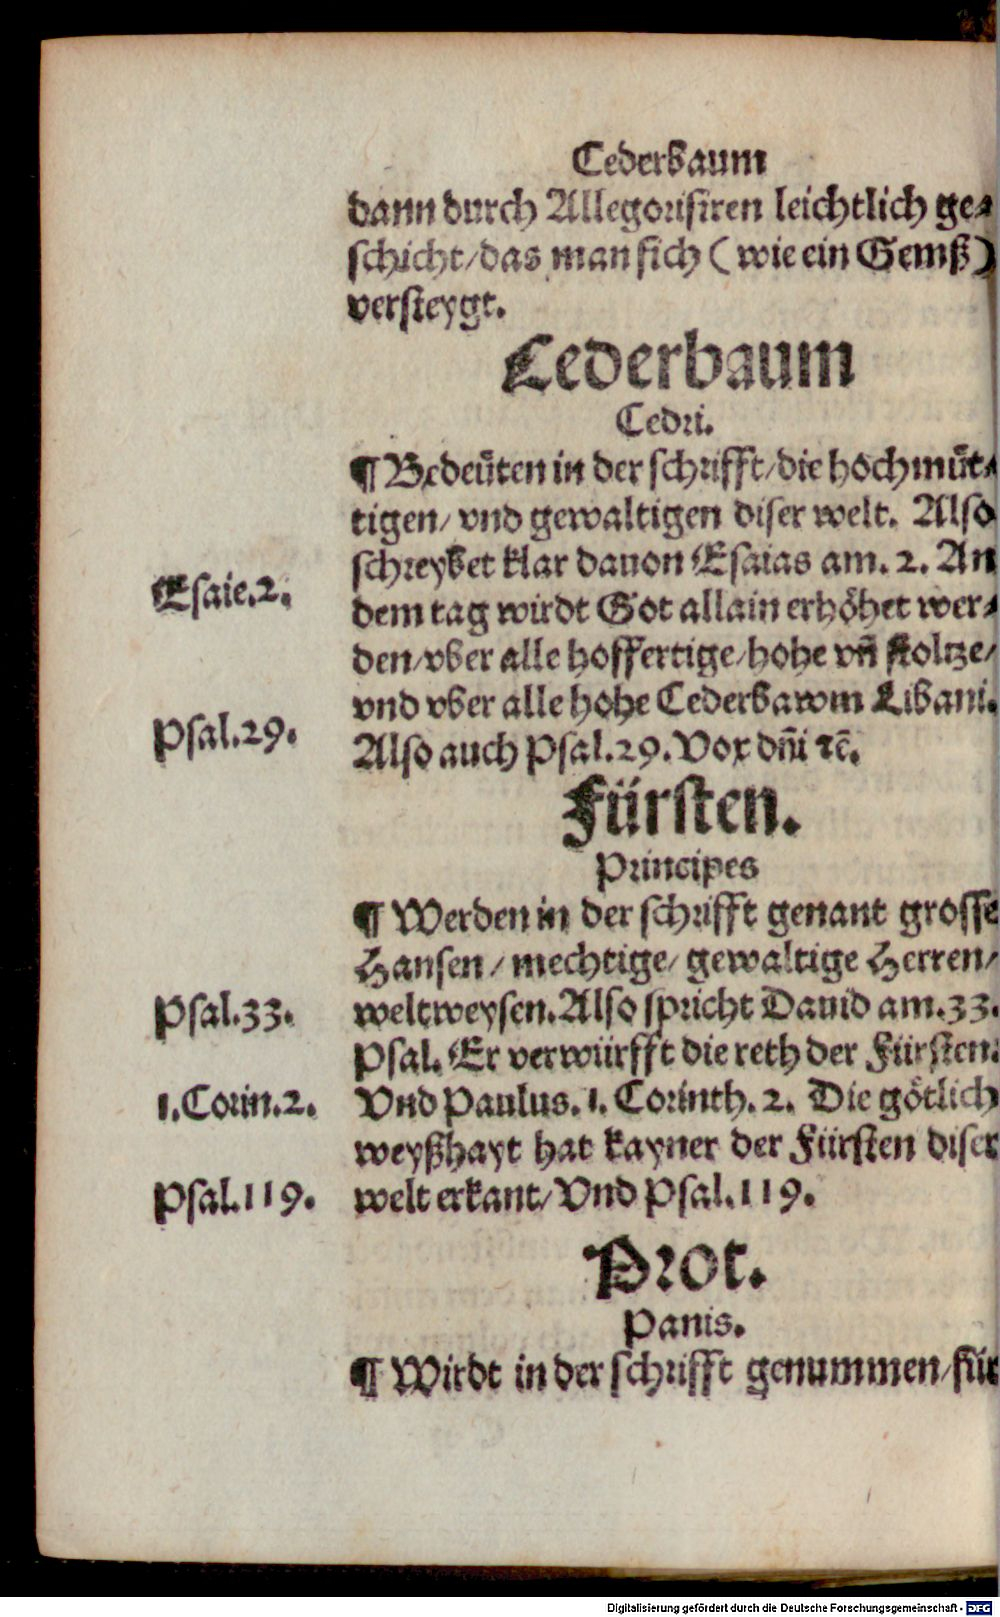 Cederbaum
dann durch Allegorisiren leichtlich ge⸗
schicht/das man sich (wie ein Gemß)
versteygt.
Cederbaum
Cedri.
¶ Bedeüten in der schrifft/die hochmüt⸗
tigen/ vnd gewaltigen diser welt. Also
schreybet klar dauon Esaias am. 2. An
Esaie.2.
dem tag wirdt Got allain erhöhet wer⸗
den/vber alle hoffertige/hohe vn̄ stoltze/
vnd vber alle hohe Cederbawm Libani.
Psal.29.
Also auch Psal.29. Vox dn̄i ⁊c̄.
Fürsten.
Principes
¶ Werden in der schrifft genant grosse
Hansen / mechtige/ gewaltige Herren/
Psal.33.
weltweysen. Also spricht Dauid am.33.
Psal. Er verwürfft die reth der Fürsten.
1.Corin.2.
Vnd Paulus. 1. Corinth. 2. Die götlich
weyßhayt hat kayner der Fürsten diser
Psal.119.
welt erkant/ Vnd Psal.119.
Prot.
Panis.
¶ Wirdt in der schrifft genummen/für
Digitalisierung gefördert durch die Deutsche Forschungsgemeinschaft - DFG